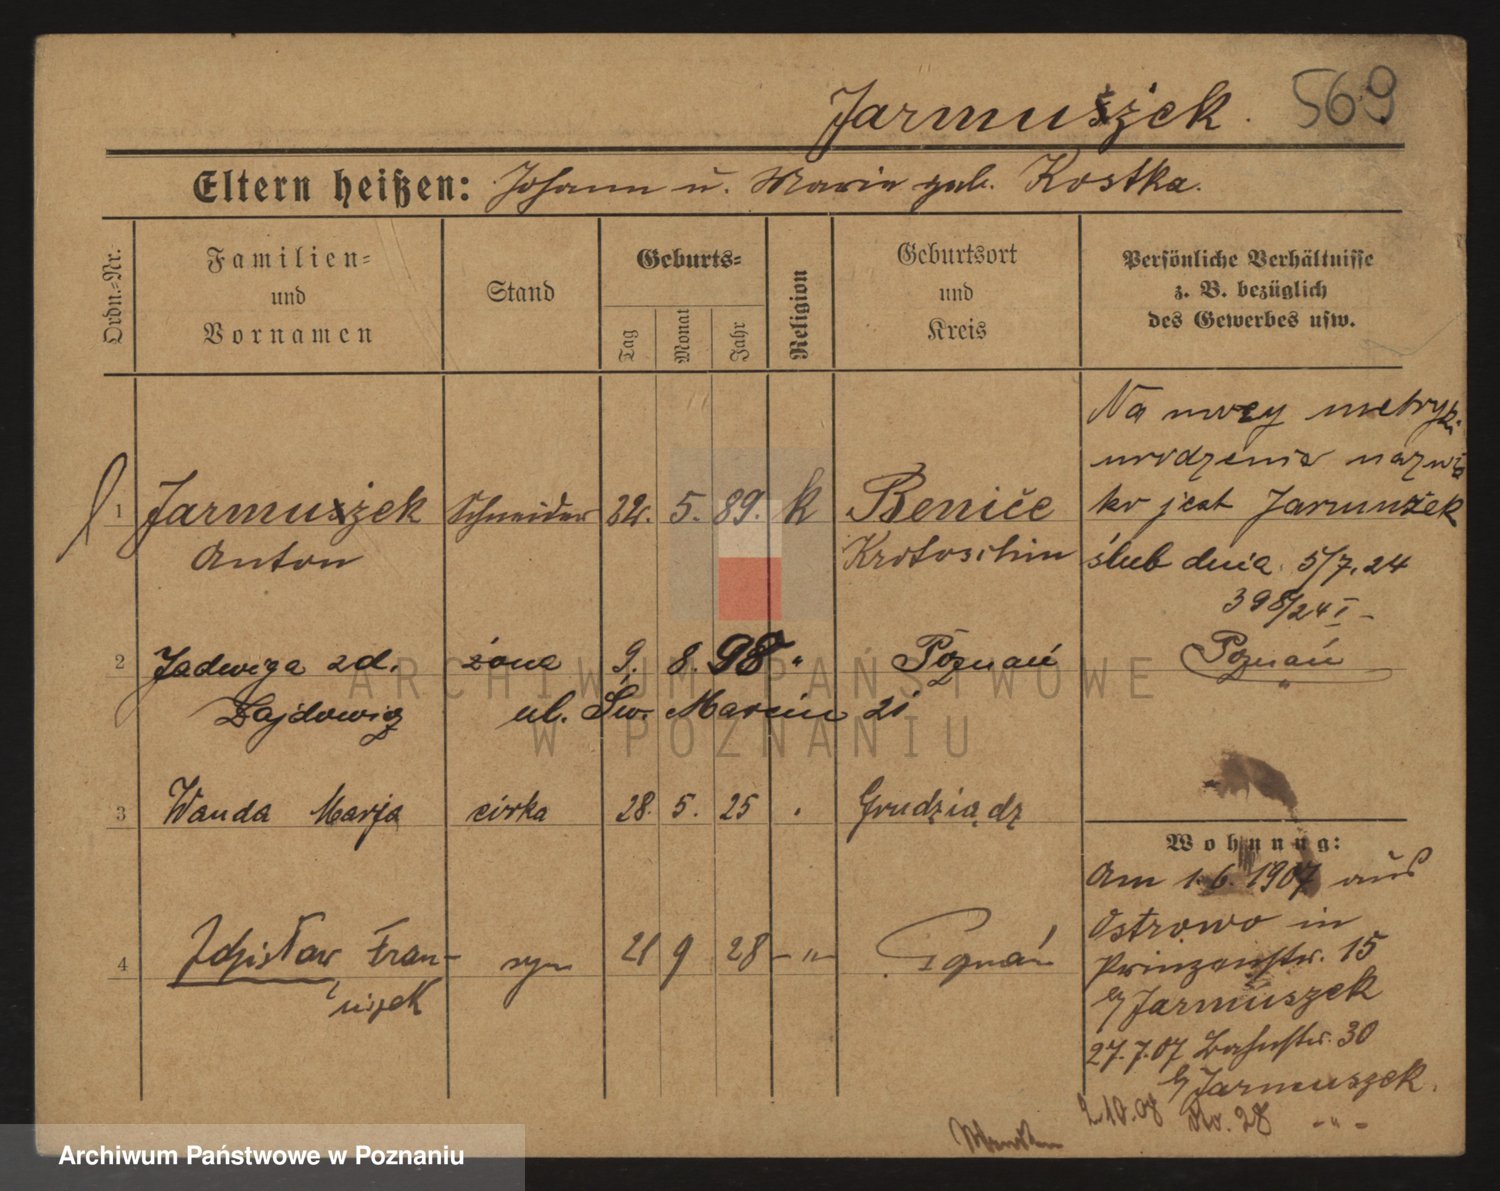 Jarmuszżek. 569
Eltern heißen: Johann u. Maria geb. Kostka.
Ordn.-Nr.
Familien-
und
Vornamen
Stand
Geburts-
Tag
Monat
Jahr
Religion
Geburtsort
und
Kreis
Persönliche Verhältnisse
z. B. bezüglich
des Gewerbes usw.
1 Jarmuszżek Schneider 22. 5. 89. k Benice
Anton Krotoschin
Na mocy metryki
urodzenia nazwis
ko jest Jarmużek
ślub dnia 5/7.24
398/24 I -
Poznań
2 Jadwiga zd. żona 9. 8. 98 " Poznań
Zajdowicz ul. Św. Marcin 21
3 Wanda Marja córka 28. 5. 25 Grudziądz
4 Zdzisław Fran- syn 21 9 28 - " - Poznań
ciszek
Wohnung:
Am 1.6.1907 aus
Ostrowo in
Prinzenstr. 15
b/ Jarmuszek
27.7.07 Bahnstr. 30
b/ Jarmuszek.
2.10.08 No. 28 - " -
ARCHIWUM PAŃSTWOWE
W POZNANIU
Archiwum Państwowe w Poznaniu